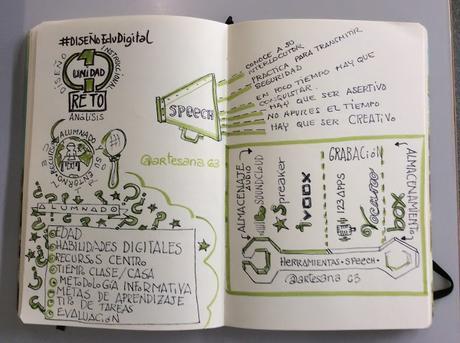 #DISEÑOEduDigital
DISEÑO
INSTRUCCIONAL
1
UNIDAD
RETO
ANÁLISIS
ALUMNADO
RECURSOS
ENTORNO
@artesana63
ALUMNADO
EDAD
HABILIDADES DIGITALES
RECURSOS CENTRO
TIEMPO CLASE/CASA
METODOLOGÍA INFORMATIVA
METAS DE APRENDIZAJE
TIPO DE TAREAS
EVALUACIÓN
SPEECH
CONOCE A SU
INTERLOCUTOR
PRACTICA PARA TRANSMITIR
SEGURIDAD
EN POCO TIEMPO HAY QUE
CONQUISTAR.
HAY QUE SER ASERTIVO
NO APURES EL TIEMPO
HAY QUE SER CREATIVO
ALMACENAJE
AUDIO
SOUNDCLOUD
Spreaker
ivoox
GRABACIÓN
123APPS
Vocaroo
ALMACENAMIENTO
box
HERRAMIENTAS·SPEECH·
@artesana63